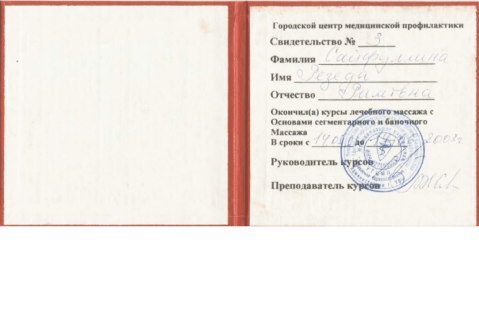 Городской центр медицинской профилактики
Свидетельство № 3
Фамилия Сайфуллина
Имя Резеда
Отчество
Окончил(а) курсы лечебного массажа с
Основами сегментарного и баночного
Массажа
В сроки с до
Руководитель курсов
Преподаватель курсов